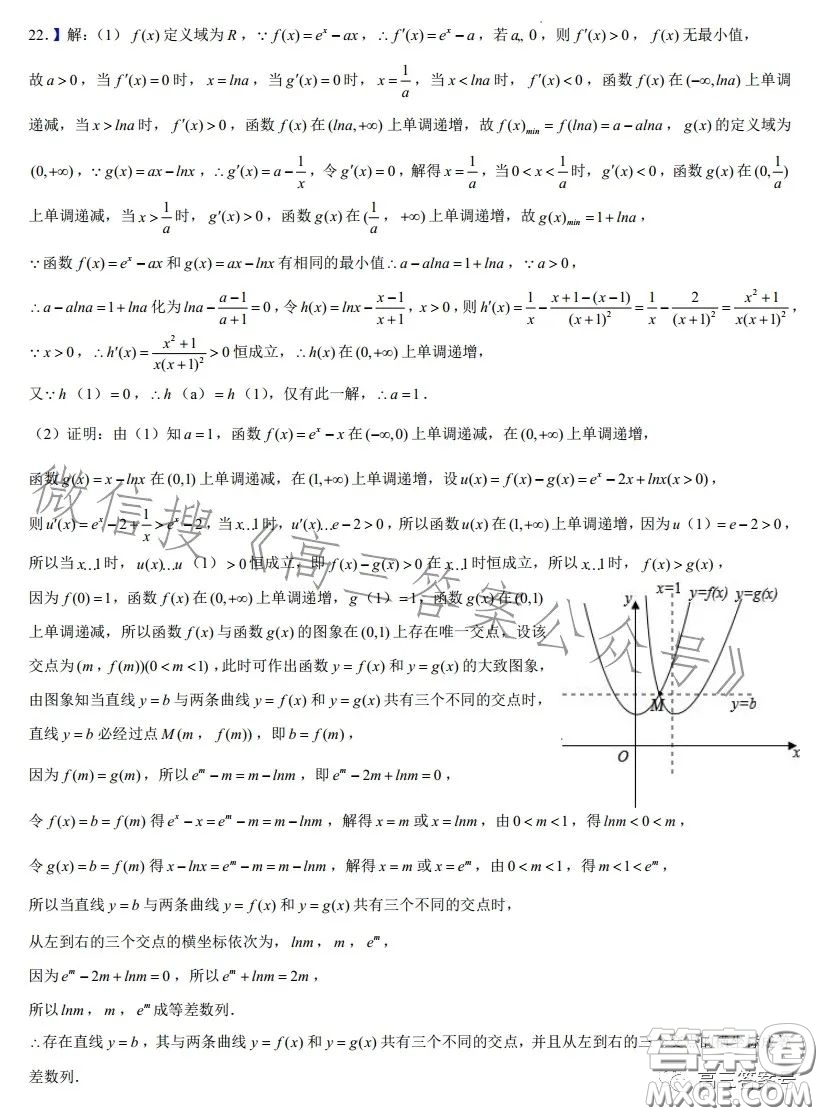 22.】解：（1） f(x)定义域为R，∵f(x)=eˣ-ax，∴f′(x)=eˣ-a，若a,, 0，则f′(x)>0，f(x)无最小值，
故a>0，当f′(x)=0时，x=lna，当g′(x)=0时，x=1/a，当x<lna时，f′(x)<0，函数f(x)在(-∞,lna)上单调
递减，当x>lna时，f′(x)>0，函数f(x)在(lna,+∞)上单调递增，故f(x)min=f(lna)=a-alna，g(x)的定义域为
(0,+∞)，∵g(x)=ax-lnx，∴g′(x)=a-1/x，令g′(x)=0，解得x=1/a，当0<x<1/a时，g′(x)<0，函数g(x)在(0,1/a)
上单调递减，当x>1/a时，g′(x)>0，函数g(x)在(1/a，+∞)上单调递增，故g(x)min=1+lna，
∵函数f(x)=eˣ-ax和g(x)=ax-lnx有相同的最小值∴a-alna=1+lna，∵a>0，
∴a-alna=1+lna化为lna-(a-1)/(a+1)=0，令h(x)=lnx-(x-1)/(x+1)，x>0，则h′(x)=1/x-(x+1-(x-1))/(x+1)²=1/x-2/(x+1)²=(x²+1)/(x(x+1)²)，
∵x>0，∴h′(x)=(x²+1)/(x(x+1)²)>0恒成立，∴h(x)在(0,+∞)上单调递增，
又∵h（1）=0，∴h（a）=h（1），仅有此一解，∴a=1．
（2）证明：由（1）知a=1，函数f(x)=eˣ-x在(-∞,0)上单调递减，在(0,+∞)上单调递增，
函数g(x)=x-lnx在(0,1)上单调递减，在(1,+∞)上单调递增，设u(x)=f(x)-g(x)=eˣ-2x+lnx(x>0)，
则u′(x)=eˣ-2+1/x>eˣ-2，当x…1时，u′(x)…e-2>0，所以函数u(x)在(1,+∞)上单调递增，因为u（1）=e-2>0，
所以当x…1时，u(x)…u（1）>0恒成立，即f(x)-g(x)>0在x…1时恒成立，所以x…1时，f(x)>g(x)，
因为f(0)=1，函数f(x)在(0,+∞)上单调递增，g（1）=1，函数g(x)在(0,1)
上单调递减，所以函数f(x)与函数g(x)的图象在(0,1)上存在唯一交点，设该
交点为(m，f(m))(0<m<1)，此时可作出函数y=f(x)和y=g(x)的大致图象，
由图象知当直线y=b与两条曲线y=f(x)和y=g(x)共有三个不同的交点时，
直线y=b必经过点M(m，f(m))，即b=f(m)，
因为f(m)=g(m)，所以eᵐ-m=m-lnm，即eᵐ-2m+lnm=0，
令f(x)=b=f(m)得eˣ-x=eᵐ-m=m-lnm，解得x=m或x=lnm，由0<m<1，得lnm<0<m，
令g(x)=b=f(m)得x-lnx=eᵐ-m=m-lnm，解得x=m或x=eᵐ，由0<m<1，得m<1<eᵐ，
所以当直线y=b与两条曲线y=f(x)和y=g(x)共有三个不同的交点时，
从左到右的三个交点的横坐标依次为，lnm，m，eᵐ，
因为eᵐ-2m+lnm=0，所以eᵐ+lnm=2m，
所以lnm，m，eᵐ成等差数列．
∴存在直线y=b，其与两条曲线y=f(x)和y=g(x)共有三个不同的交点，并且从左到右的三个
差数列．
x=1
y
y=f(x)
y=g(x)
M
y=b
O
x
微信搜《高三答案公众号》
答案圈
高三答案号
MXQE.COM